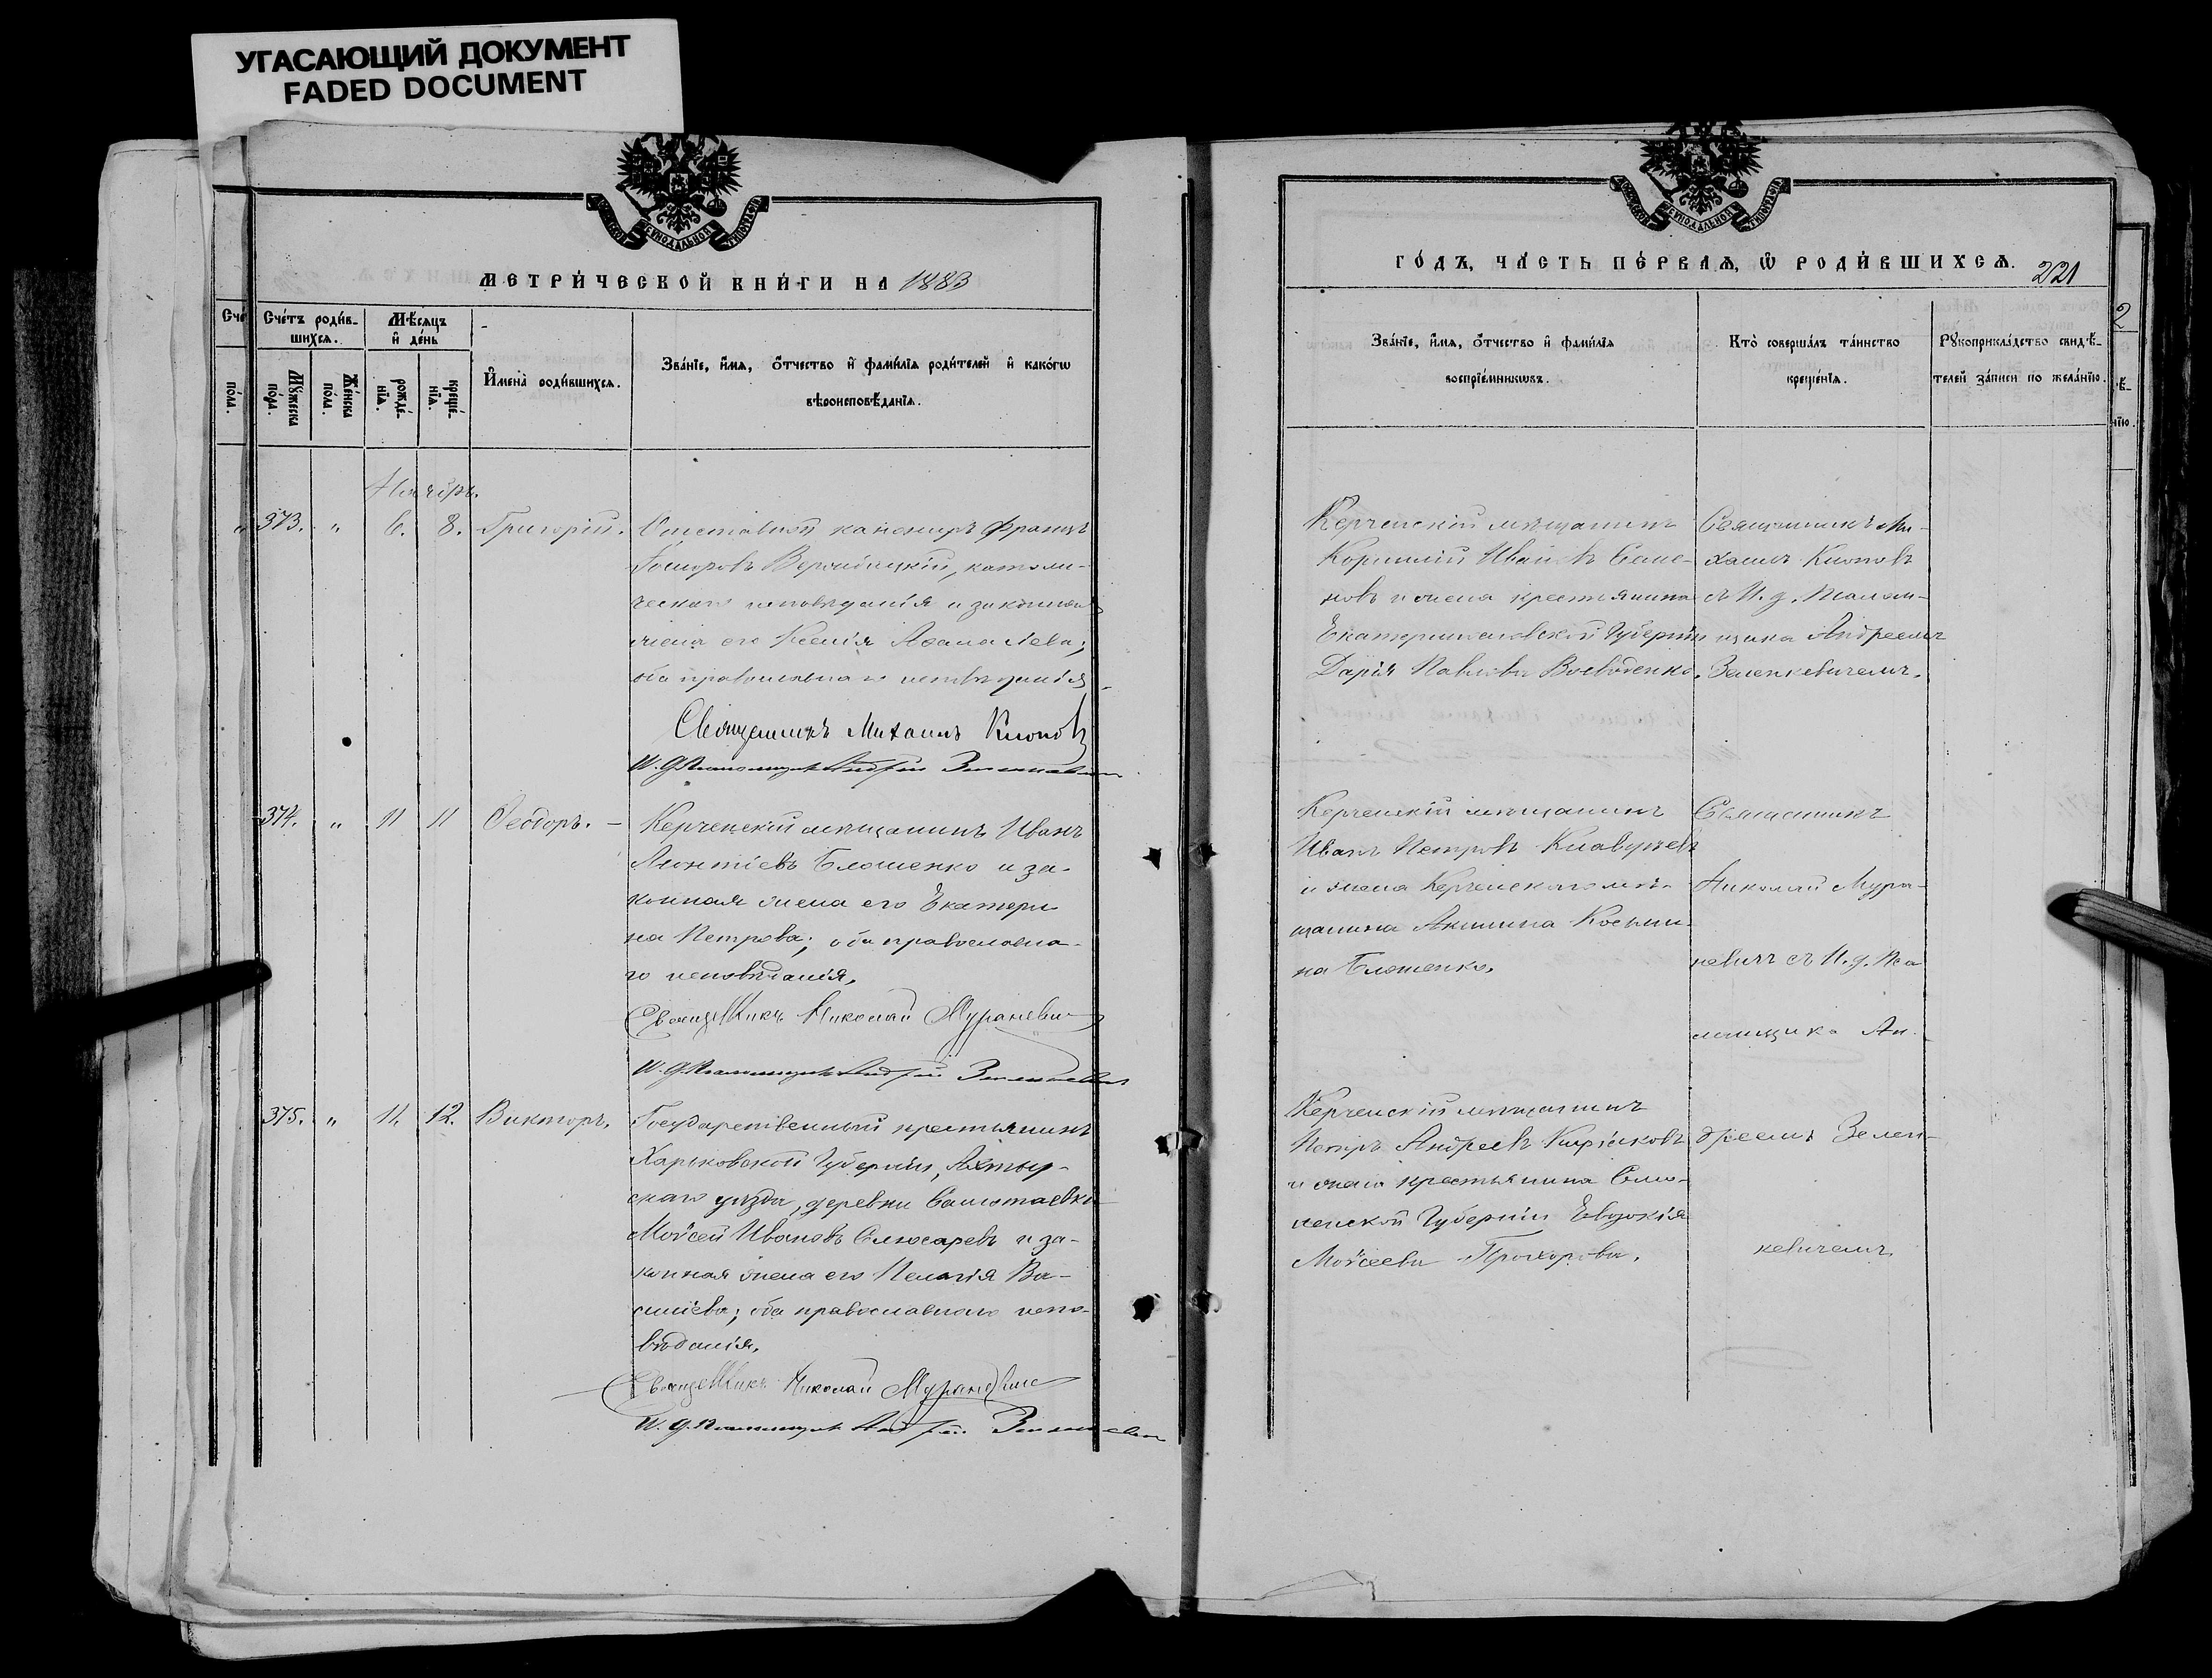 УГАСАЮЩИЙ ДОКУМЕНТ
FADED DOCUMENT
МЕТРИ́ЧЕСКОЙ КНИ́ГИ НА 1883
Сче́тъ роди́в-
шихсѧ.
Мѣ́сѧцъ
и҆ де́нь
Мꙋ́жеска по́ла.
Же́нска по́ла.
рожде́-
нїѧ.
креще́-
нїѧ.
И҆мена̀ роди́вшихсѧ.
Зва́нїе, и҆́мѧ, ѻ҆́тчество и҆ фами́лїѧ роди́телей и҆ како́гѡ
вѣроисповѣ́данїѧ.
Ноябрь.
373. " 6. 8. Григорій.
Отставной канониръ Францъ
Вержбицкій, католи-
ческаго исповѣданія и законная
жена его Ксенія
оба православнаго исповѣданія
Священникъ Михаилъ Кноповъ
И. д. Псаломщика Андрей Зеленкевичъ
374. " 11 11 Ѳеодоръ. -
Керченскій мѣщанинъ Иванъ
Леонтіевъ Блошенко и за-
конная жена его Екатери
на Петрова; оба православна-
го исповѣданія.
Священникъ Николай Мураневичъ
И. д. Псаломщика Андрей Зеленкевичъ
375. " 11. 12. Викторъ.
Государственный крестьянинъ
Харьковской Губерніи, Ахтыр-
скаго уѣзда, деревни
Моѵсей Ивановъ Слюсаревъ и за-
конная жена его Пелагія Ва-
силіева; оба православнаго испо-
вѣданія.
Священникъ Николай Мураневичъ
И. д. Псаломщика Андрей Зеленкевичъ
ГО́ДЪ, ЧА́СТЬ ПЕ́РВАѦ, Ѿ РОДИ́ВШИХСѦ. 221
Зва́нїе, и҆́мѧ, ѻ҆́тчество и҆ фами́лїѧ
воспрїе́мникѡвъ.
Кто̀ соверша́лъ та́инство
креще́нїѧ.
Рꙋкоприкла́дство свидѣ́-
телей за́писи по жела́нїю.
Керченскій мѣщанинъ
Иванъ Семе-
новъ и жена крестьянина
Екатеринославской Губерніи
Дарія Павлова Воеводенко.
Священникъ Ми-
хаилъ Кноповъ
съ И. д. Псалом-
щика Андреемъ
Зеленкевичемъ.
Керченскій мѣщанинъ
Иванъ Петровъ
и жена Керченскаго мѣ-
щанина Акилина Косьми-
на Блошенко.
Священникъ
Николай Мура-
невичъ съ И. д. Пса
ломщика Ан-
дреемъ Зелен-
кевичемъ
Керченскій мѣщанинъ
Петръ Андреевъ
и жена крестьянина Смо-
ленской Губерніи Евдокія
Моѵсеева Прохорова.